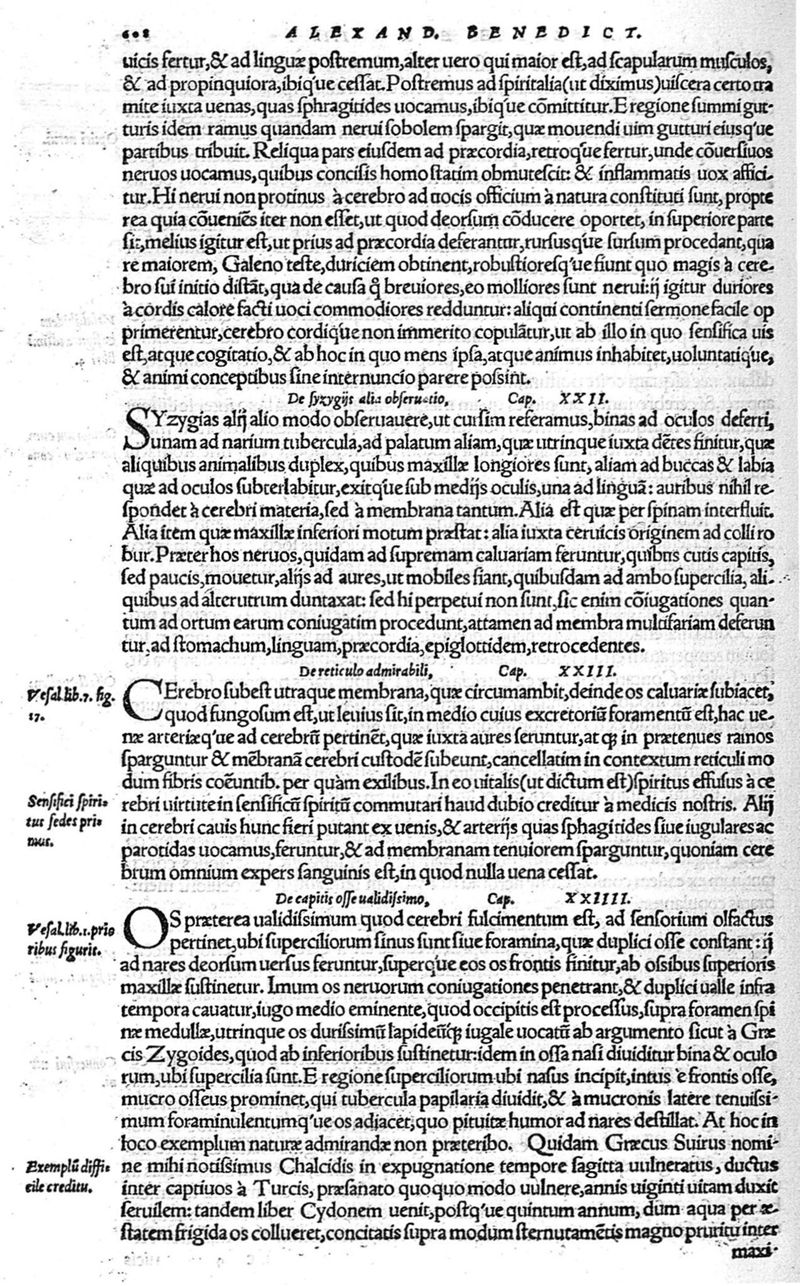 608 ALEXAND. BENEDICT.
uicis fertur,& ad linguæ postremum,alter uero qui maior est,ad scapularum musculos,
& ad propinquiora,ibiq́ue cessat.Postremus ad spiritalia(ut diximus)uiscera certo tra
mite iuxta uenas,quas sphragitides uocamus,ibiq́ue cõmittitur.E regione summi gut-
turis idem ramus quandam nerui sobolem spargit,quæ mouendi uim gutturi eiusq́ue
partibus tribuit. Reliqua pars eiusdem ad præcordia,retroq́ue fertur,unde cõuersiuos
neruos uocamus,quibus concisis homo statim obmutescit: & inflammatis uox affici-
tur.Hi nerui non protinus à cerebro ad uocis officium à natura constituti sunt, propte
rea quia cõueniẽs iter non esset,ut quod deorsum cõducere oportet, in superiore parte
sit,melius igitur est,ut prius ad præcordia deferantur,rursusq́ue sursum procedant,qua
re maiorem, Galeno teste,duriciem obtinent,robustioresq́ue fiunt quo magis à cere-
bro sui initio distãt, qua de causa q̃ breuiores,eo molliores sunt nerui:ij igitur duriores
à cordis calore facti uoci commodiores redduntur: aliqui continenti sermone facile op
primerentur,cerebro cordiq́ue non immerito copulãtur,ut ab illo in quo sensifica uis
est,atque cogitatio,& ab hoc in quo mens ipsa,atque animus inhabitet,uoluntatiq́ue,
& animi conceptibus sine internuncio parere possint.
De syzygijs alia obseruatio, Cap. XXII.
SYzygias alij alio modo obseruauere,ut cursim referamus,binas ad oculos deferri,
unam ad narium tubercula,ad palatum aliam,quæ utrinque iuxta dẽtes finitur,quæ
aliquibus animalibus duplex,quibus maxillæ longiores sunt, aliam ad buccas & labia
quæ ad oculos subterlabitur,exitq́ue sub medijs oculis,una ad linguã: auribus nihil re-
spondet à cerebri materia,sed à membrana tantum. Alia est quæ per spinam interfluit.
Alia item quæ maxillæ inferiori motum præstat: alia iuxta ceruicis originem ad colli ro
bur. Præter hos neruos, quidam ad supremam caluariam feruntur,quibus cutis capitis,
sed paucis,mouetur,alijs ad aures,ut mobiles fiant,quibusdam ad ambo supercilia, ali-
quibus ad alterutrum duntaxat: sed hi perpetui non sunt,sic enim cõiugationes quan-
tum ad ortum earum coniugatim procedunt,attamen ad membra multifariam deferun
tur,ad stomachum,linguam,præcordia,epiglottidem,retrocedentes.
De reticulo admirabili, Cap. XXIII.
Vesal.lib.7. fig.
17.
CErebro subest utraque membrana,quæ circumambit,deinde os caluariæ subiacet,
quod fungosum est,ut leuius sit,in medio cuius excretoriũ foramentũ est,hac ue-
næ arteriæq́ue ad cerebrũ pertinẽt,quæ iuxta aures feruntur,atq; in prætenues ramos
sparguntur & mẽbranã cerebri custodẽ subeunt,cancellatim in contextum reticuli mo
dum fibris coẽuntib. per quàm exilibus.In eo uitalis(ut dictum est)spiritus effusus à ce
rebri uirtute in sensificũ spiritũ commutari haud dubio creditur à medicis nostris. Alij
in cerebri cauis hunc fieri putant ex uenis,& arterijs quas sphagitides siue iugulares ac
parotidas uocamus,feruntur,& ad membranam tenuiorem sparguntur, quoniam cere
brum omnium expers sanguinis est,in quod nulla uena cessat.
Sensifici spiri-
tus sedes pri-
mus.
De capitis osse ualidissimo, Cap. XXIIII.
Vesal.lib.1.prio
ribus figuris.
OS præterea ualidissimum quod cerebri fulcimentum est, ad sensorium olfactus
pertinet,ubi superciliorum sinus sunt siue foramina,quæ duplici osse constant:ij
ad nares deorsum uersus feruntur,superq́ue eos os frontis finitur,ab ossibus superioris
maxillæ sustinetur. Imum os neruorum coniugationes penetrant,& duplici ualle infra
tempora cauatur,iugo medio eminente,quod occipitis est processus,supra foramen spi
næ medullæ,utrinque os durissimũ lapideũq; iugale uocatũ ab argumento sicut à Græ
cis Zygoides,quod ab inferioribus sustinetur:idem in ossa nasi diuiditur bina & oculo
rum,ubi supercilia sunt.E regione superciliorum ubi nasus incipit,intus è frontis osse,
mucro osseus prominet,qui tubercula papilaria diuidit,& à mucronis latere tenuissi-
mum foraminulentumq́ue os adiacet,quo pituitæ humor ad nares destillat. At hoc in
loco exemplum naturæ admirandæ non præteribo. Quidam Græcus Suirus nomi-
ne mihi notissimus Chalcidis in expugnatione tempore sagitta uulneratus, ductus
inter captiuos à Turcis, præsanato quoquo modo uulnere,annis uiginti uitam duxit
seruilem: tandem liber Cydonem uenit,postq́ue quintum annum, dum aqua per æ-
statem frigida os collueret,concitatis supra modum sternutamẽtis magno pruritu inter
Exemplũ diffi-
cile creditu.
maxi-